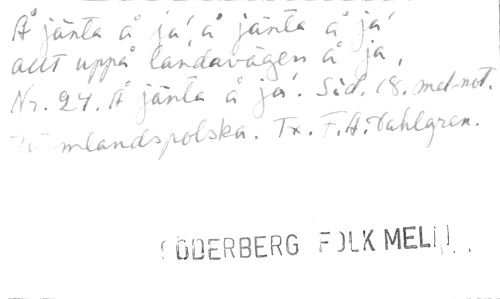 Å jänta å ja', å jänta å ja'
allt uppå landavägen å ja,
Nr. 24. Å jänta å ja'. Sid. 18. mel-not.
Värmlandspolska. Tx. F.A. Dahlgren.
SÖDERBERG FOLK MEL